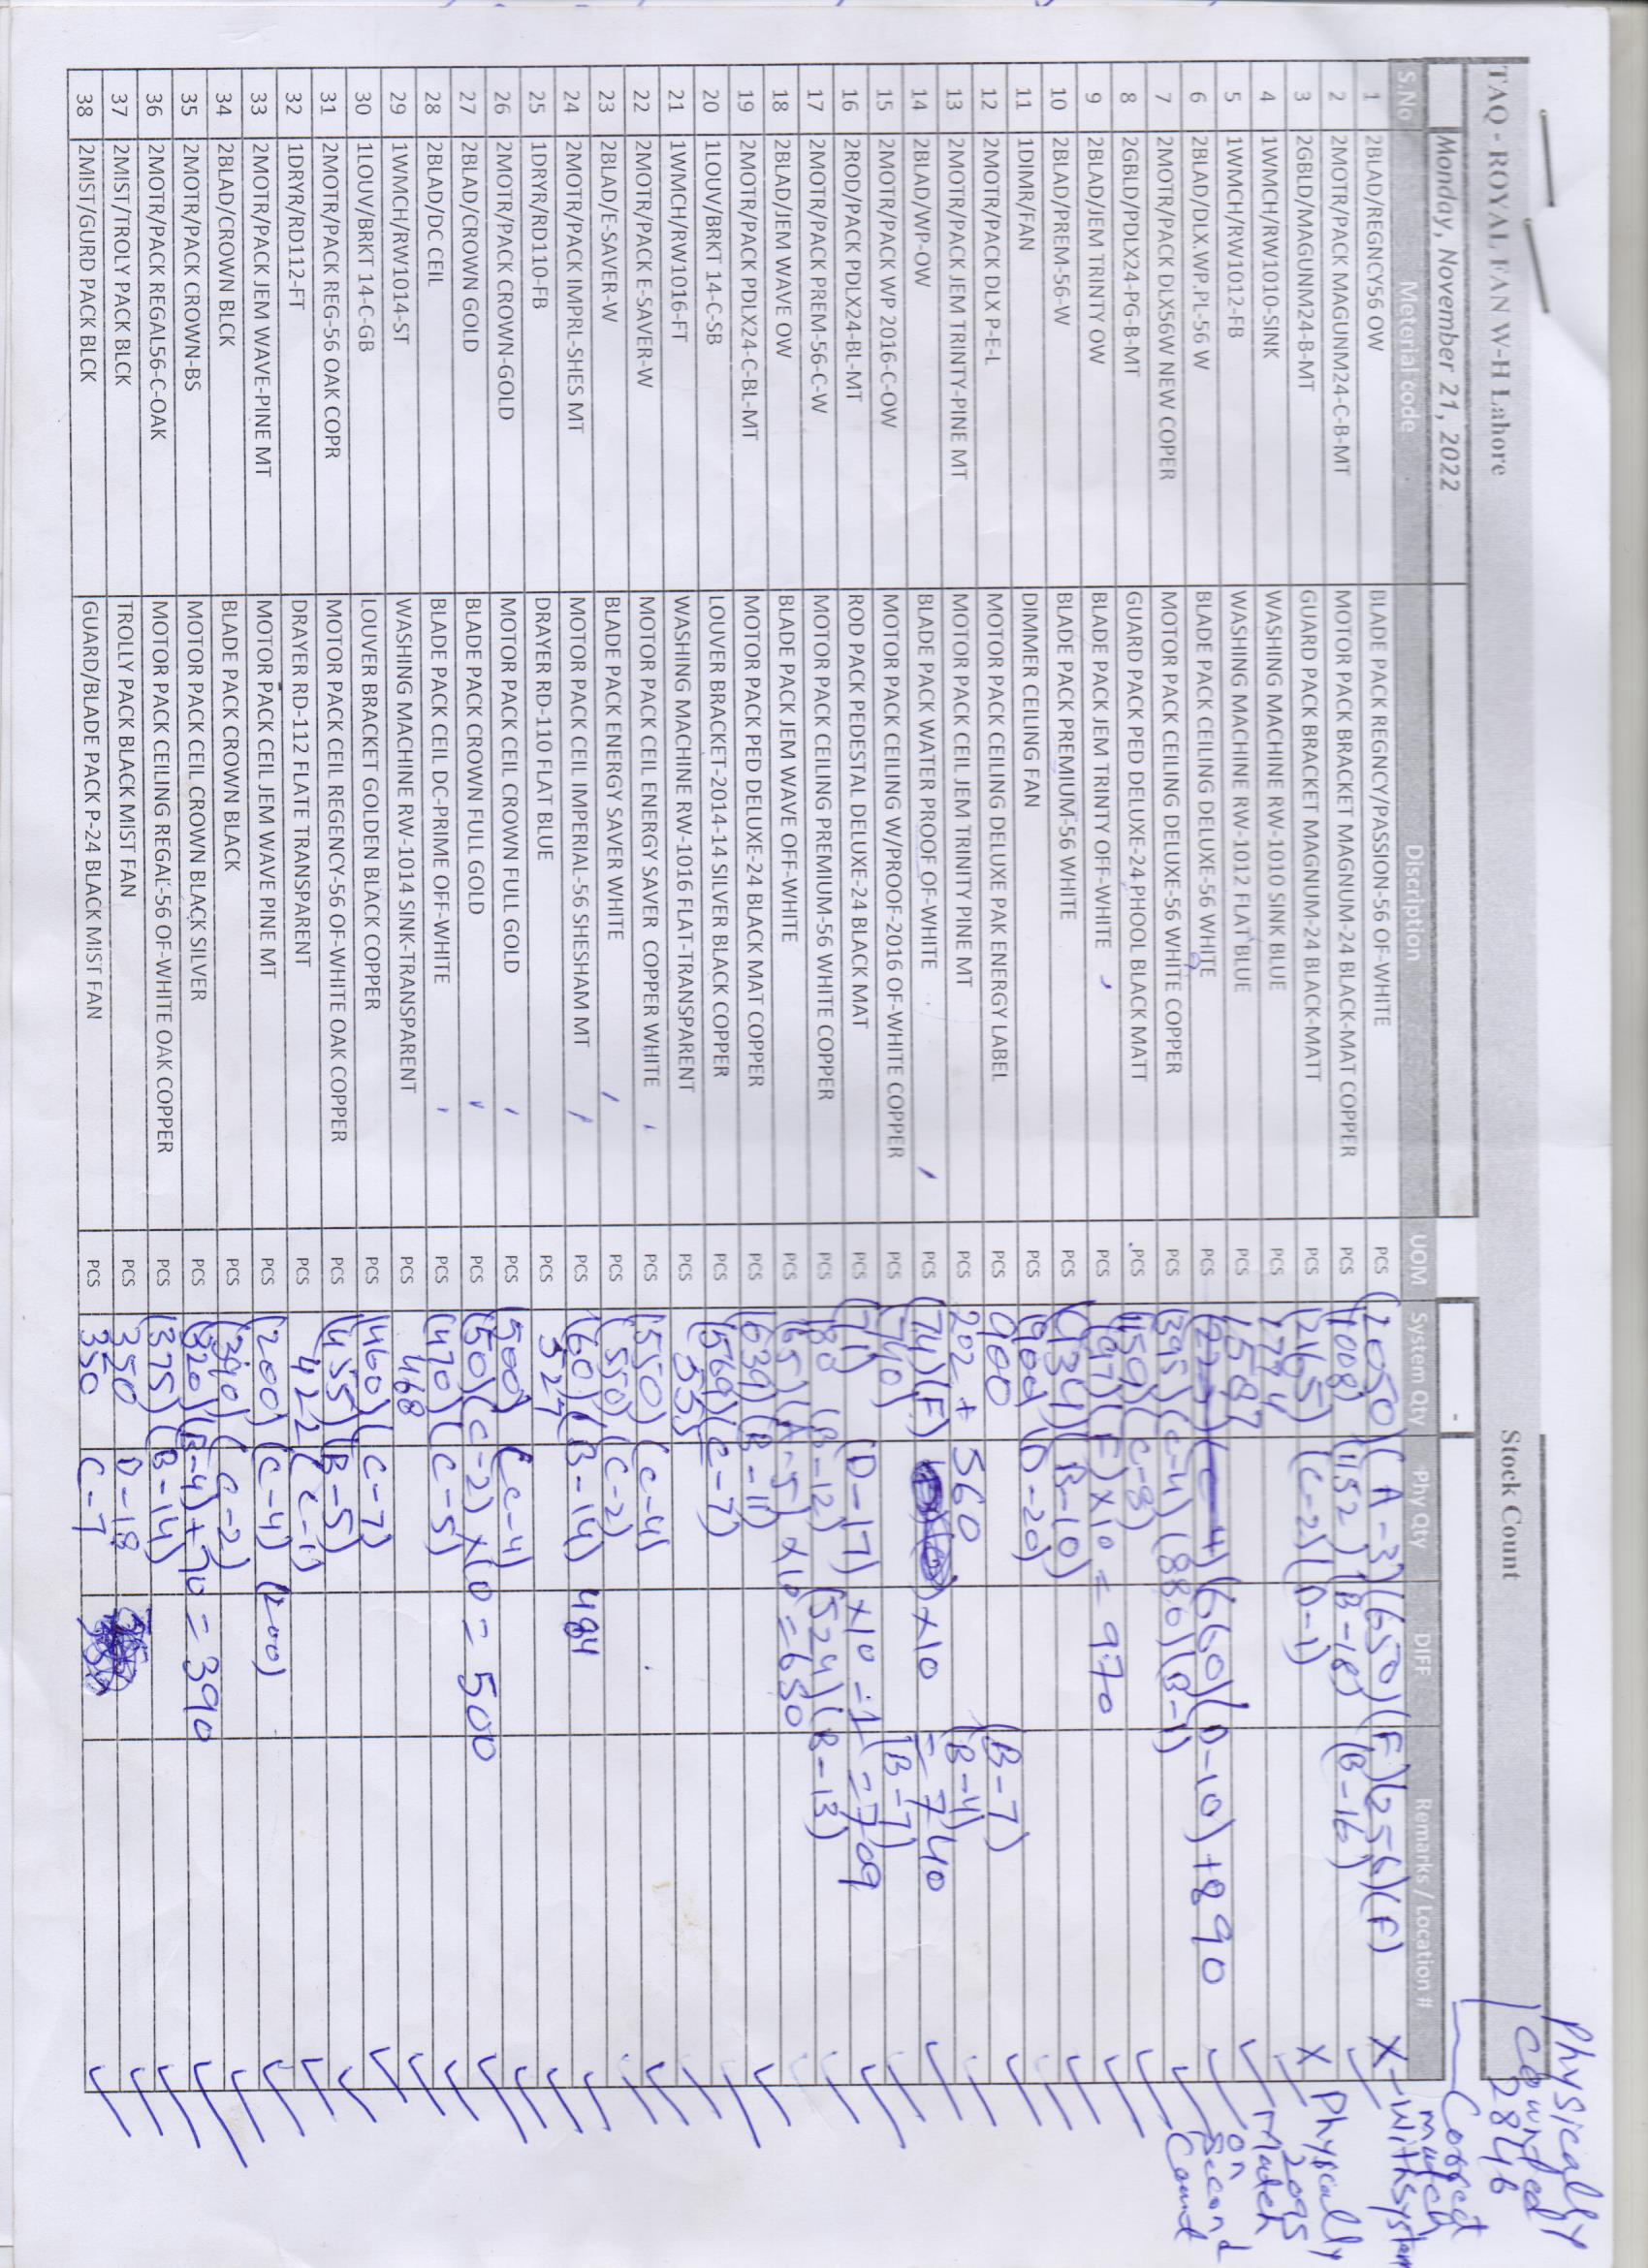 Physically
Counded
2846
Correct
match
With System
TAQ - ROYAL FAN W-H Lahore Stock Count
Monday, November 21, 2022 -
S.No Meterial code Discription UOM System Qty Phy Qty DIFF Remarks / Location #
1 2BLAD/REGNCY56 OW BLADE PACK REGNCY/PASSION-56 OF-WHITE PCS (2050) (A-3) (650) (F) (256) (F) X
2 2MOTR/PACK MAGUNM24-C-B-MT MOTOR PACK BRACKET MAGNUM-24 BLACK-MAT COPPER PCS (1008) (1152) (B-18) (B-16) ✓
3 2GBLD/MAGUNM24-B-MT GUARD PACK BRACKET MAGNUM-24 BLACK-MATT PCS (2165) (C-2) (D-1) X
Physically
2095
Match
on
Second
Count
4 1WMCH/RW1010-SINK WASHING MACHINE RW-1010 SINK BLUE PCS 1774 ✓
5 1WMCH/RW1012-FB WASHING MACHINE RW-1012 FLAT BLUE PCS 1587 ✓
6 2BLAD/DLX.WP.PL-56 W BLADE PACK CEILING DELUXE-56 WHITE PCS (C-4) (660) (D-10) +890 ✓
7 2MOTR/PACK DLX56W NEW COPER MOTOR PACK CEILING DELUXE-56 WHITE COPPER PCS (395) (C-4) (880) (B-1) ✓
8 2GBLD/PDLX24-PG-B-MT GUARD PACK PED DELUXE-24 PHOOL BLACK MATT PCS (1159) (C-8) ✓
9 2BLAD/JEM TRINTY OW BLADE PACK JEM TRINTY OFF-WHITE PCS (97) (F) X10 = 970 ✓
10 2BLAD/PREM-56-W BLADE PACK PREMIUM-56 WHITE PCS (934) (B-10) ✓
11 1DIMR/FAN DIMMER CEILING FAN PCS (900) (D-20) ✓
12 2MOTR/PACK DLX P-E-L MOTOR PACK CEILING DELUXE PAK ENERGY LABEL PCS 900 (B-7) ✓
13 2MOTR/PACK JEM TRINTY-PINE MT MOTOR PACK CEIL JEM TRINITY PINE MT PCS 202 + 560 (B-4) ✓
14 2BLAD/WP-OW BLADE PACK WATER PROOF OF-WHITE PCS (74) (F) X10 = 740 ✓
15 2MOTR/PACK WP 2016-C-OW MOTOR PACK CEILING W/PROOF-2016 OF-WHITE COPPER PCS (740) (B-7) ✓
16 2ROD/PACK PDLX24-BL-MT ROD PACK PEDESTAL DELUXE-24 BLACK MAT PCS (71) (D-17) X10 -1 = 709 ✓
17 2MOTR/PACK PREM-56-C-W MOTOR PACK CEILING PREMIUM-56 WHITE COPPER PCS 180 (B-12) (524) (B-13) ✓
18 2BLAD/JEM WAVE OW BLADE PACK JEM WAVE OFF-WHITE PCS (65) (A-5) X10 = 650 ✓
19 2MOTR/PACK PDLX24-C-BL-MT MOTOR PACK PED DELUXE-24 BLACK MAT COPPER PCS (639) (B-11) ✓
20 1LOUV/BRKT 14-C-SB LOUVER BRACKET-2014-14 SILVER BLACK COPPER PCS (569) (C-7) ✓
21 1WMCH/RW1016-FT WASHING MACHINE RW-1016 FLAT-TRANSPARENT PCS 555 ✓
22 2MOTR/PACK E-SAVER-W MOTOR PACK CEIL ENERGY SAVER COPPER WHITE PCS (550) (C-4) ✓
23 2BLAD/E-SAVER-W BLADE PACK ENERGY SAVER WHITE PCS (550) (C-2) ✓
24 2MOTR/PACK IMPRL-SHES MT MOTOR PACK CEIL IMPERIAL-56 SHESHAM MT PCS (60) (B-14) 484 ✓
25 1DRYR/RD110-FB DRAYER RD-110 FLAT BLUE PCS 527 ✓
26 2MOTR/PACK CROWN-GOLD MOTOR PACK CEIL CROWN FULL GOLD PCS (500) (C-4) ✓
27 2BLAD/CROWN GOLD BLADE PACK CROWN FULL GOLD PCS (50) (C-2) X10 = 500 ✓
28 2BLAD/DC CEIL BLADE PACK CEIL DC-PRIME OFF-WHITE PCS (470) (C-5) ✓
29 1WMCH/RW1014-ST WASHING MACHINE RW-1014 SINK-TRANSPARENT PCS 468 ✓
30 1LOUV/BRKT 14-C-GB LOUVER BRACKET GOLDEN BLACK COPPER PCS (460) (C-7) ✓
31 2MOTR/PACK REG-56 OAK COPR MOTOR PACK CEIL REGENCY-56 OF-WHITE OAK COPPER PCS (455) (B-5) ✓
32 1DRYR/RD112-FT DRAYER RD-112 FLATE TRANSPARENT PCS 422 (C-1) ✓
33 2MOTR/PACK JEM WAVE-PINE MT MOTOR PACK CEIL JEM WAVE PINE MT PCS (200) (C-4) (200) ✓
34 2BLAD/CROWN BLCK BLADE PACK CROWN BLACK PCS (390) (C-2) ✓
35 2MOTR/PACK CROWN-BS MOTOR PACK CEIL CROWN BLACK SILVER PCS (320) (B-4) + 70 = 390 ✓
36 2MOTR/PACK REGAL56-C-OAK MOTOR PACK CEILING REGAL-56 OF-WHITE OAK COPPER PCS (375) (B-14) ✓
37 2MIST/TROLY PACK BLCK TROLLY PACK BLACK MIST FAN PCS 350 D-18 ✓
38 2MIST/GURD PACK BLCK GUARD/BLADE PACK P-24 BLACK MIST FAN PCS 350 C-7 ✓